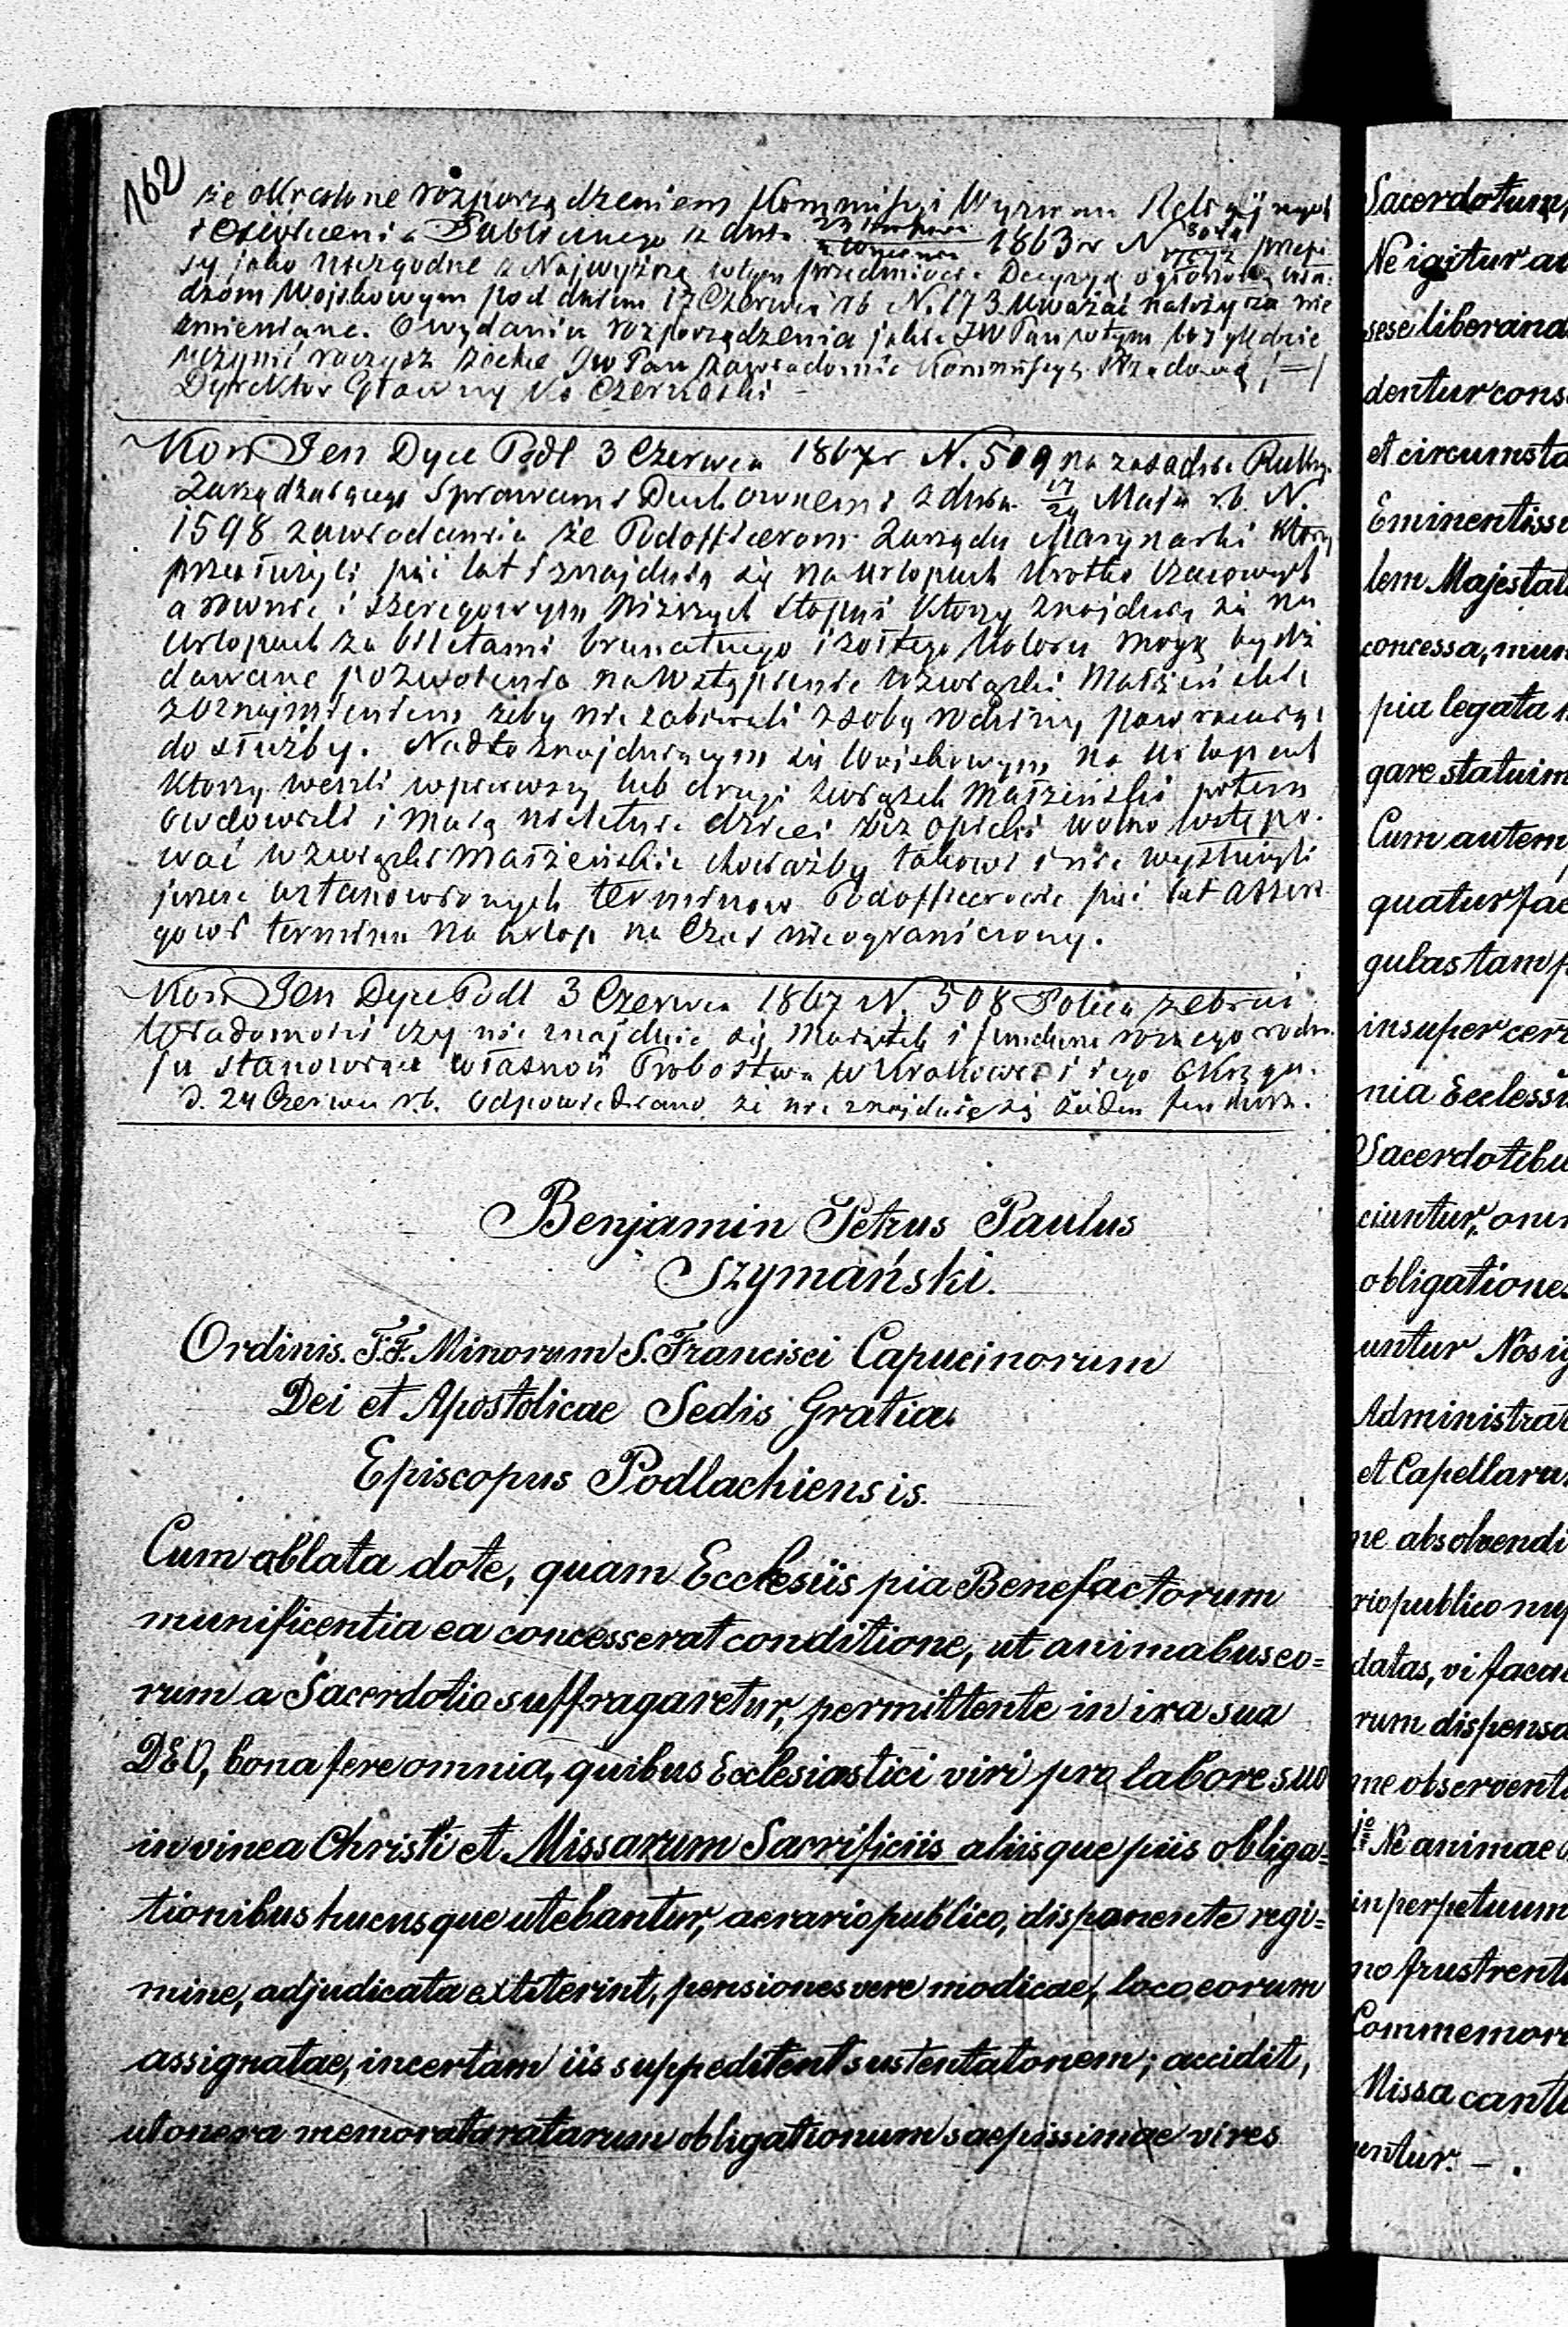 162
że określone rozporządzeniem Kommissyi Wyznań Religijnych
i Oświecenia Publicznego z dnia 1863 r N przepi
sy jako niezgodne z Najwyższą w tym przedmiocie Decyzyą ogłoszoną wła:
dzom Wojskowym pod dniem 17 Czerwca rb N. 173 uważać należy za nie
zmieniane. O wydaniu rozporządzenia jakie JW Pan w tym względzie
uczynić raczysz zechce JW Pan zawiadomić Kommissyę Rządową /–/
Dyrektor Główny
Kon Jen Dyec Podl 3 Czerwca 1867 r N. 509 na zasadzie
Zarządzającego Sprawami Duchownemi z dnia 17/29 Maja r.b. N.
1598 zawiadamia że Podofficerom Zarządu Marynarki którzy
przesłużyli pięć lat i znajdują się na urlopach krótko czasowych
a równie i szeregowym niższych stopni którzy znajdują się na
urlopach za biletami brunatnego i żółtego koloru mogą bydź
dawane pozwolenia na wstąpienie w związki Małżeńskie
z oznajmieniem żeby nie zabierali z sobą rodziny powracając
do służby. Nadto znajdującym się Wojskowym na urlopach
którzy weszli w pierwszy lub drugi związek małżeński potem
owdowieli i mają nieletnie dzieci bez opieki wolno wstępo-
wać w związki małżeńskie chociażby takowi i nie wysłużyli
przez ustanowionych terminow Podofficerowie pięć lat a szere
gowi terminu na urlop na czas nieograniczony.
Kon Jen Dyec Podl 3 Czerwca 1867 N. 508 Poleca zebrać
wiadomości czy nie znajduje się Majątek i fundusz rożnego rodza
ju stanowiące własność Probostwa w Krakowie i jego Okręgu.
D. 24 Czerwca r.b. odpowiedziano że nie znajduje się żaden fundusz.
Benjamin Petrus Paulus
Szymański.
Ordinis. F.F. Minorum S. Francisci Capucinorum
Dei et Apostolicae Sedis Gratia
Episcopus Podlachiensis.
Cum ablata dote, quam Ecclesiis pia Benefactorum
munificentia ea concesserat conditione, ut animabus eo=
rum a Sacerdotio suffragaretur, permittente in ira sua
DEO, bona fere omnia, quibus Ecclesiastici viri pro labore suo
in vinea Christi et Missarum Sacrificiis aliisque piis obliga=
tionibus hucusque utebantur, aerario publico, disponente regi=
mine, adjudicata extiterint, pensiones vere modicae, loco eorum
assignatae, incertam iis suppeditent sustentatonem; accidit,
ut onera memorataratarum obligationum saepissimae vires
Sacerdotum,
Ne igitur
sese liberand
dentur cons
et circumsta
Eminentiss
lem Majestat
concessa, mun
pia legata
gare statuim
Cum autem
quatur fac
gulas tam p
insuper cert
nia Ecclessi
Sacerdotibu
ciuntur, om
obligationes
untur Nos ig
Administrat
et Capellaru
ne absolvendi
rio publico nup
datas, vi facul
rum dispensa
me observent
1o Ne animae
in perpetuum
no frustrent
Commemora
Missa canta
entur. –.